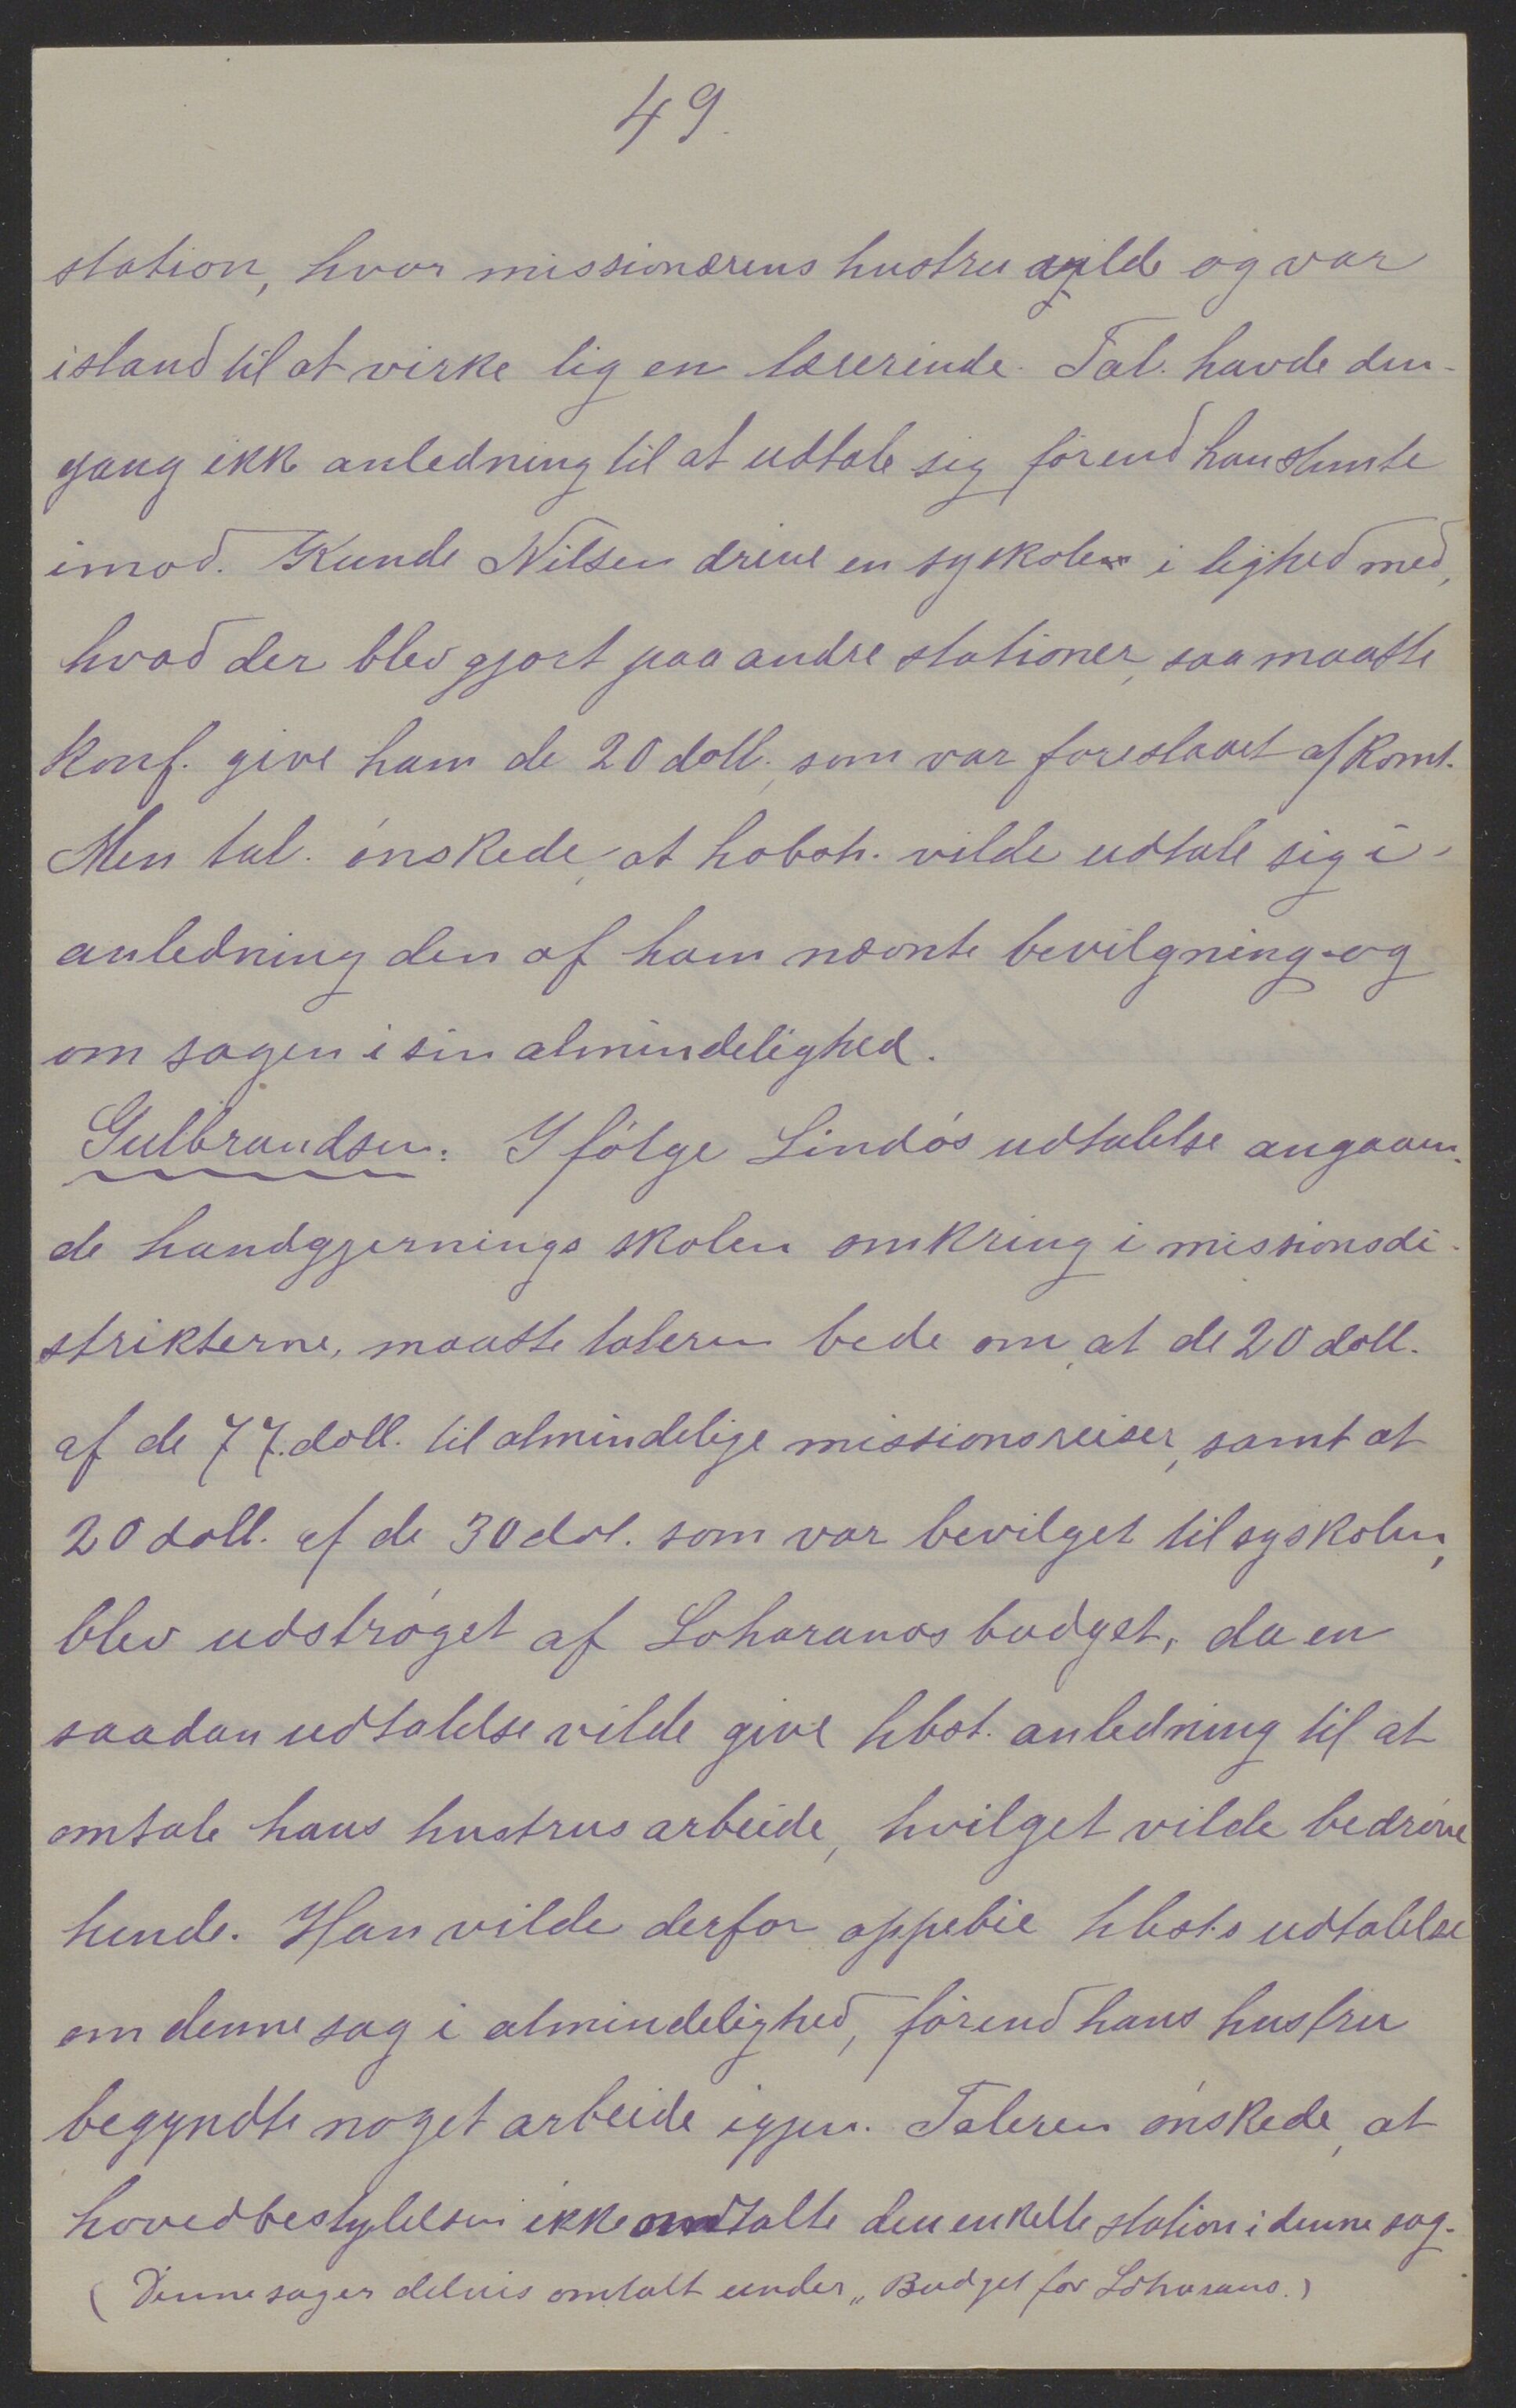 49.
station, hvor missionærens hustru og var
istand til at virke lig en lærerinde. Tal. havde den-
gang ikke anledning til at udtale sig förend han stemte
imod. Kunde Nilsen drive en syskole i lighed med,
hvad der blev gjort paa andre stationer, saa maatte
konf. give ham de 20 doll., som var foreslaaet af komt.
Men tal. önskede, at hobst. vilde udtale sig i
anledning den af ham nævnte bevilgning og
om sagen i sin almindelighed.
Gulbrandsen: Ifölge Lindös udtalelse angaaen-
de handgjernings skolen omkring i missionsdi-
strikterne, maatte taleren bede om, at de 20 doll.
af de 77. doll. til almindelige missionsreiser, samt at
20 doll. af de 30 dol. som var bevilget til syskolen,
blev udströget af Loharanos budget, da en
saadan udtalelse vilde give hbst. anledning til at
omtale hans hustrus arbeide, hvilget vilde bedröve
hende. Han vilde derfor oppebie hbst.s udtalelse
om denne sag i almindelighed, förend hans hustru
begyndte noget arbeide igjen. Taleren önskede, at
hovedbestylelsen ikke omtalte den enkelte station i denne sag.
(Denne sag er delvis omtalt under „Budget for Loharano.)